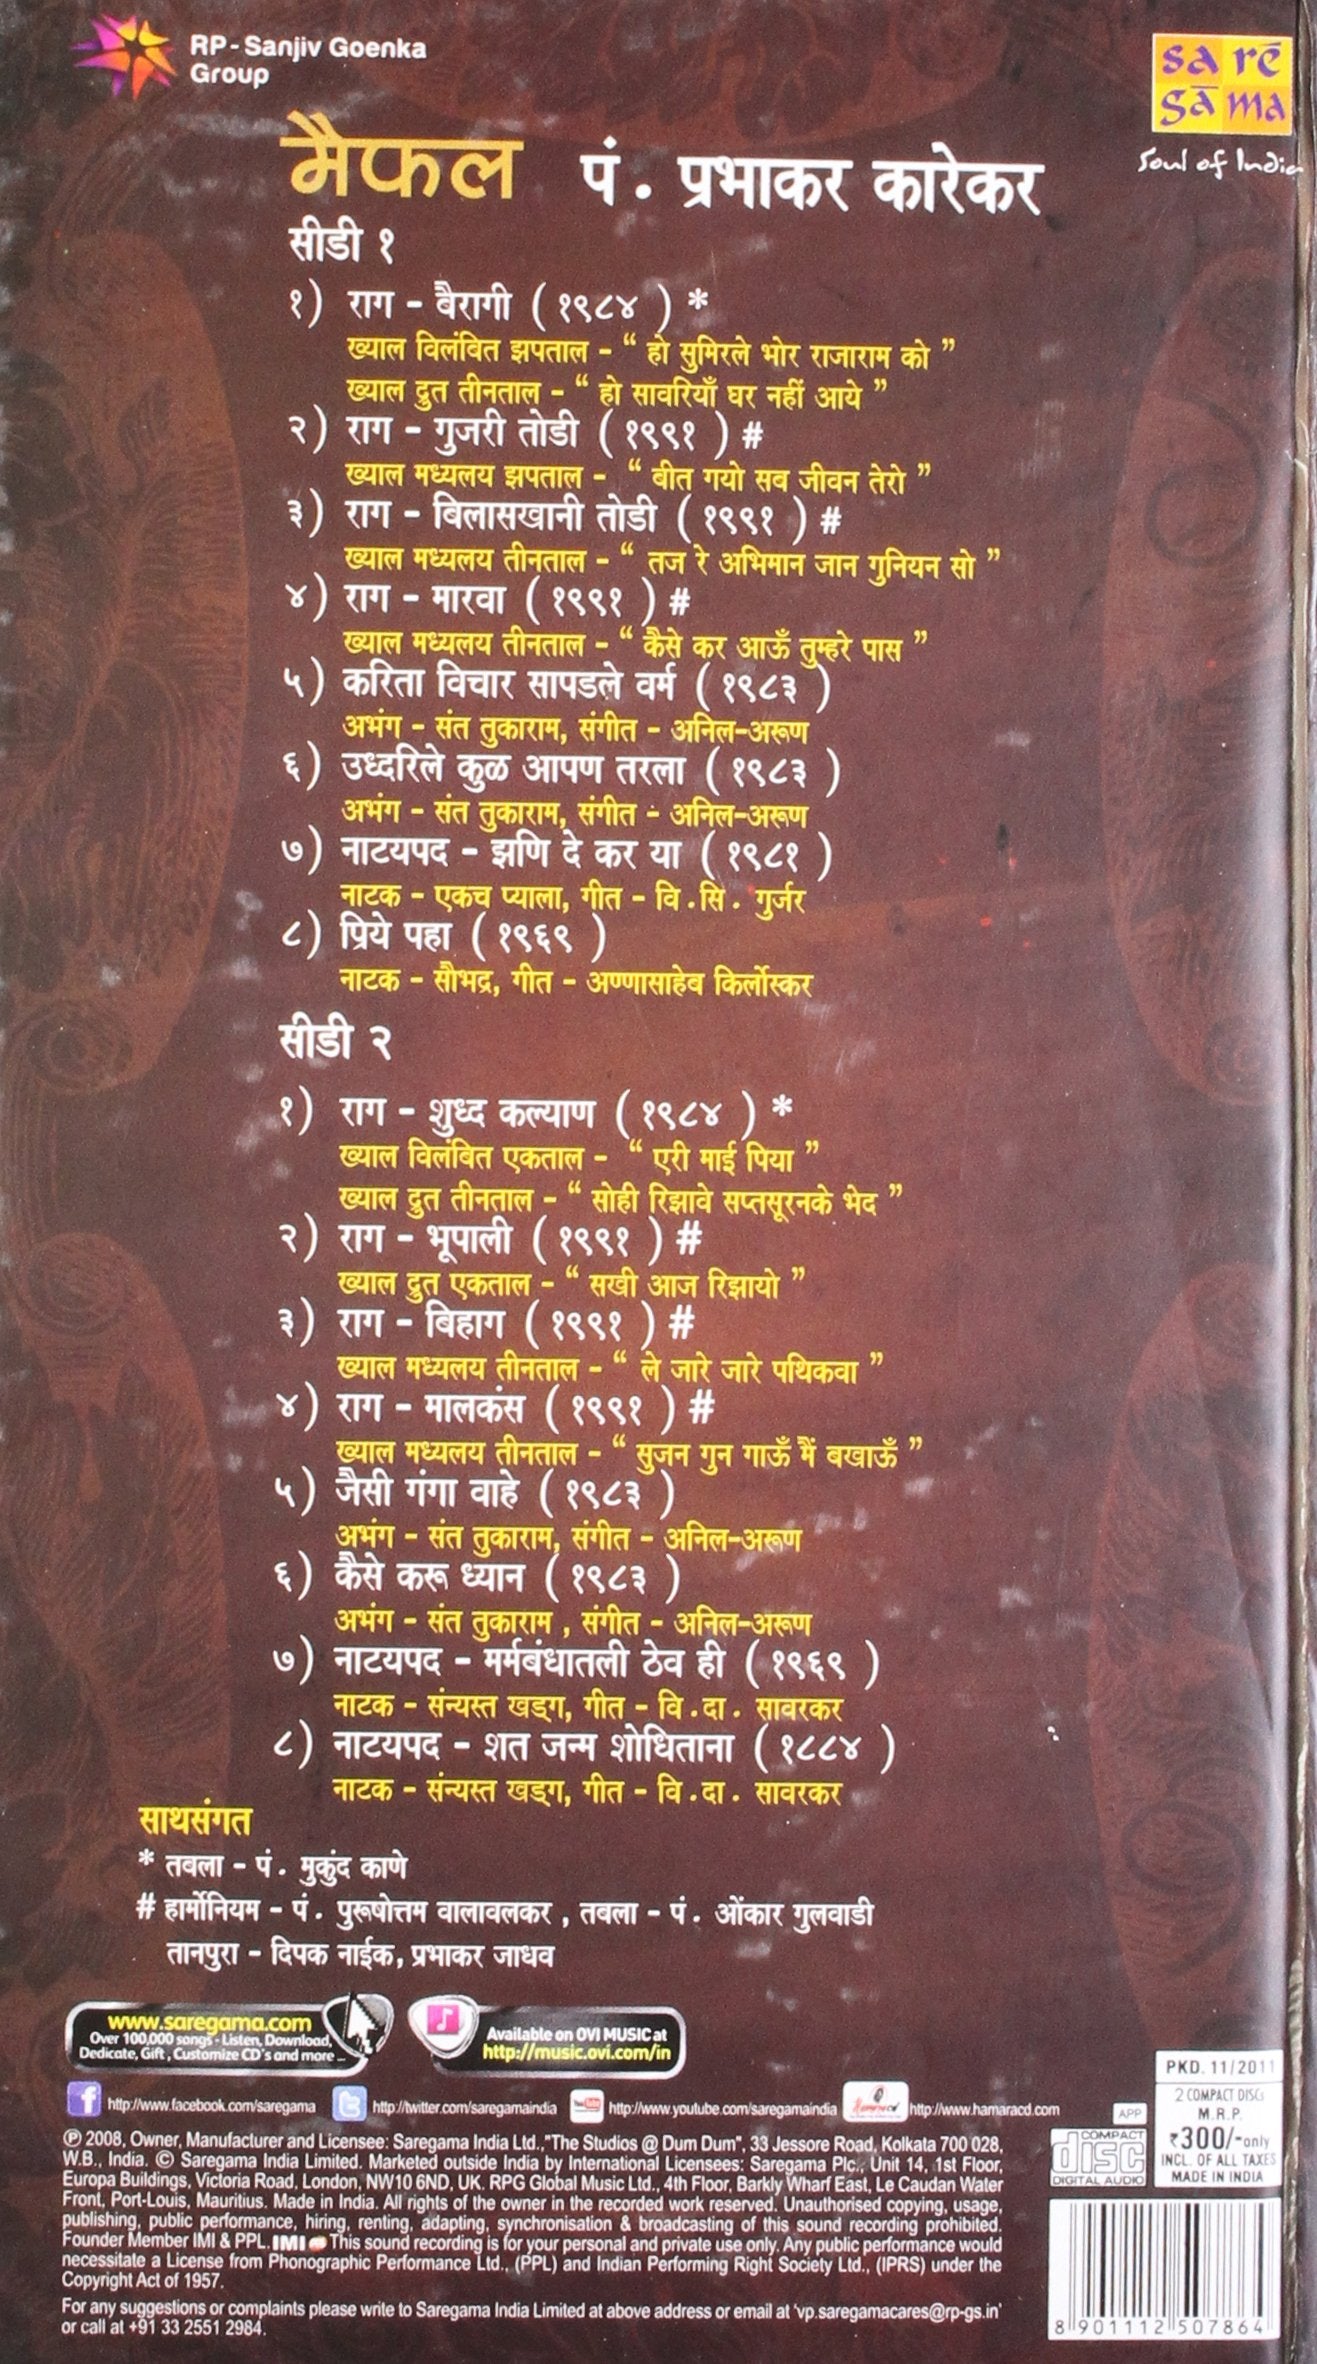 RP-Sanjiv Goenka
Group
sa rē
gā ma
Soul of India
मैफल पं. प्रभाकर कारेकर
सीडी १
१) राग - बैरागी (१९८४) *
ख्याल विलंबित झपताल - “ हो सुमिरले भोर राजाराम को ”
ख्याल द्रुत तीनताल - “ हो सावरियाँ घर नहीं आये ”
२) राग - गुजरी तोडी (१९९१) #
ख्याल मध्यलय झपताल - “ बीत गयो सब जीवन तेरो ”
३) राग - बिलासखानी तोडी (१९९१) #
ख्याल मध्यलय तीनताल - “ तज रे अभिमान जान गुनियन सो ”
४) राग - मारवा (१९९१) #
ख्याल मध्यलय तीनताल - “ कैसे कर आऊँ तुम्हरे पास ”
५) करिता विचार सापडले वर्म (१९८३)
अभंग - संत तुकाराम, संगीत - अनिल-अरूण
६) उध्दरिले कुळ आपण तरला (१९८३)
अभंग - संत तुकाराम, संगीत - अनिल-अरूण
७) नाटयपद - झणि दे कर या (१९८१)
नाटक - एकच प्याला, गीत - वि.सि. गुर्जर
८) प्रिये पहा (१९६९)
नाटक - सौभद्र, गीत - अण्णासाहेब किर्लोस्कर
सीडी २
१) राग - शुध्द कल्याण (१९८४) *
ख्याल विलंबित एकताल - “ एरी माई पिया ”
ख्याल द्रुत तीनताल - “ सोही रिझावे सप्तसूरनके भेद ”
२) राग - भूपाली (१९९१) #
ख्याल द्रुत एकताल - “ सखी आज रिझायो ”
३) राग - बिहाग (१९९१) #
ख्याल मध्यलय तीनताल - “ ले जारे जारे पथिकवा ”
४) राग - मालकंस (१९९१) #
ख्याल मध्यलय तीनताल - “ सुजन गुन गाऊँ मैं बखाऊँ ”
५) जैसी गंगा वाहे (१९८३)
अभंग - संत तुकाराम, संगीत - अनिल-अरूण
६) कैसे करू ध्यान (१९८३)
अभंग - संत तुकाराम , संगीत - अनिल-अरूण
७) नाटयपद - मर्मबंधातली ठेव ही (१९६९)
नाटक - संन्यस्त खड्ग, गीत - वि.दा. सावरकर
८) नाटयपद - शत जन्म शोधिताना (१८८४)
नाटक - संन्यस्त खड्ग, गीत - वि.दा. सावरकर
साथसंगत
* तबला - पं. मुकुंद काणे
# हार्मोनियम - पं. पुरूषोत्तम वालावलकर , तबला - पं. ओंकार गुलवाडी
तानपुरा - दिपक नाईक, प्रभाकर जाधव
www.saregama.com
Over 100,000 songs - Listen, Download,
Dedicate, Gift , Customize CD's and more ...
Available on OVI MUSIC at
http://music.ovi.com/in
http://www.facebook.com/saregama http://twitter.com/saregamaindia http://www.youtube.com/saregamaindia http://www.hamaracd.com
℗ 2008, Owner, Manufacturer and Licensee: Saregama India Ltd.,"The Studios @ Dum Dum", 33 Jessore Road, Kolkata 700 028,
W.B., India. © Saregama India Limited. Marketed outside India by International Licensees: Saregama Plc., Unit 14, 1st Floor,
Europa Buildings, Victoria Road, London, NW10 6ND, UK. RPG Global Music Ltd., 4th Floor, Barkly Wharf East, Le Caudan Water
Front, Port-Louis, Mauritius. Made in India. All rights of the owner in the recorded work reserved. Unauthorised copying, usage,
publishing, public performance, hiring, renting, adapting, synchronisation & broadcasting of this sound recording prohibited.
Founder Member IMI & PPL. IMI This sound recording is for your personal and private use only. Any public performance would
necessitate a License from Phonographic Performance Ltd., (PPL) and Indian Performing Right Society Ltd., (IPRS) under the
Copyright Act of 1957.
For any suggestions or complaints please write to Saregama India Limited at above address or email at 'vp.saregamacares@rp-gs.in'
or call at +91 33 2551 2984.
APP
COMPACT
disc
DIGITAL AUDIO
PKD. 11/2011
2 COMPACT DISCs
M.R.P.
₹300/-only
INCL. OF ALL TAXES
MADE IN INDIA
8 901112 507864